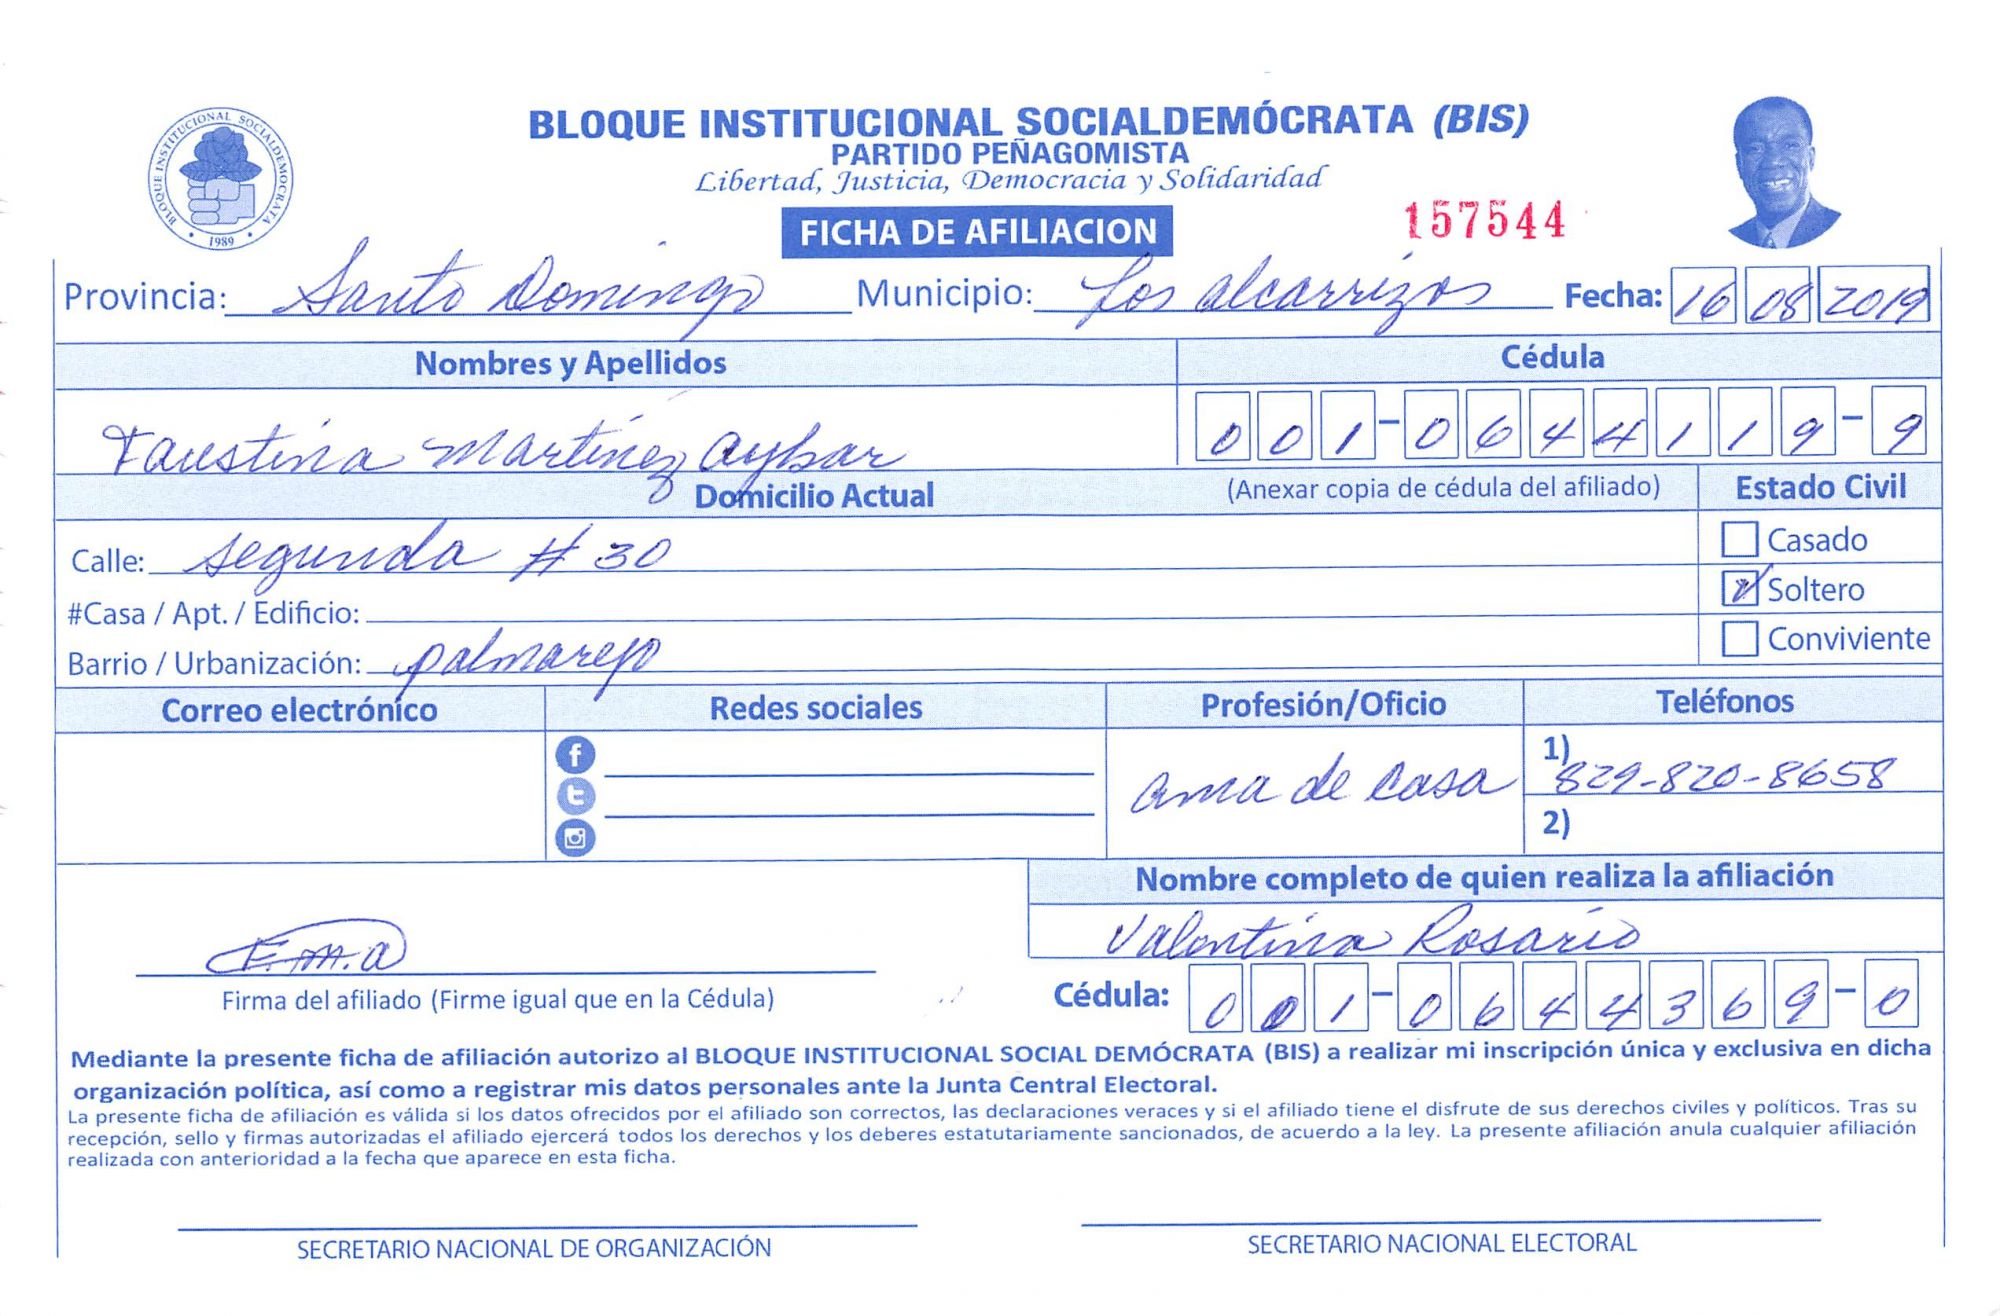 BLOQUE INSTITUCIONAL SOCIALDEMOCRATA
1989
BLOQUE INSTITUCIONAL SOCIALDEMÓCRATA (BIS)
PARTIDO PEÑAGOMISTA
Libertad, Justicia, Democracia y Solidaridad
FICHA DE AFILIACION
157544
Provincia: Santo Domingo Municipio: Los alcarrizos Fecha: 16 08 2019
Nombres y Apellidos Cédula
Faustina Martinez Aybar 001-0644119-9
Domicilio Actual (Anexar copia de cédula del afiliado) Estado Civil
Calle: segunda # 30 Casado
#Casa / Apt. / Edificio: Soltero
Barrio / Urbanización: palmarejo Conviviente
Correo electrónico Redes sociales Profesión/Oficio Teléfonos
ama de casa 1) 829-820-8658
2)
Nombre completo de quien realiza la afiliación
F.M.A Valentina Rosario
Firma del afiliado (Firme igual que en la Cédula) Cédula: 001-0644369-0
Mediante la presente ficha de afiliación autorizo al BLOQUE INSTITUCIONAL SOCIAL DEMÓCRATA (BIS) a realizar mi inscripción única y exclusiva en dicha
organización política, así como a registrar mis datos personales ante la Junta Central Electoral.
La presente ficha de afiliación es válida si los datos ofrecidos por el afiliado son correctos, las declaraciones veraces y si el afiliado tiene el disfrute de sus derechos civiles y políticos. Tras su
recepción, sello y firmas autorizadas el afiliado ejercerá todos los derechos y los deberes estatutariamente sancionados, de acuerdo a la ley. La presente afiliación anula cualquier afiliación
realizada con anterioridad a la fecha que aparece en esta ficha.
SECRETARIO NACIONAL DE ORGANIZACIÓN SECRETARIO NACIONAL ELECTORAL